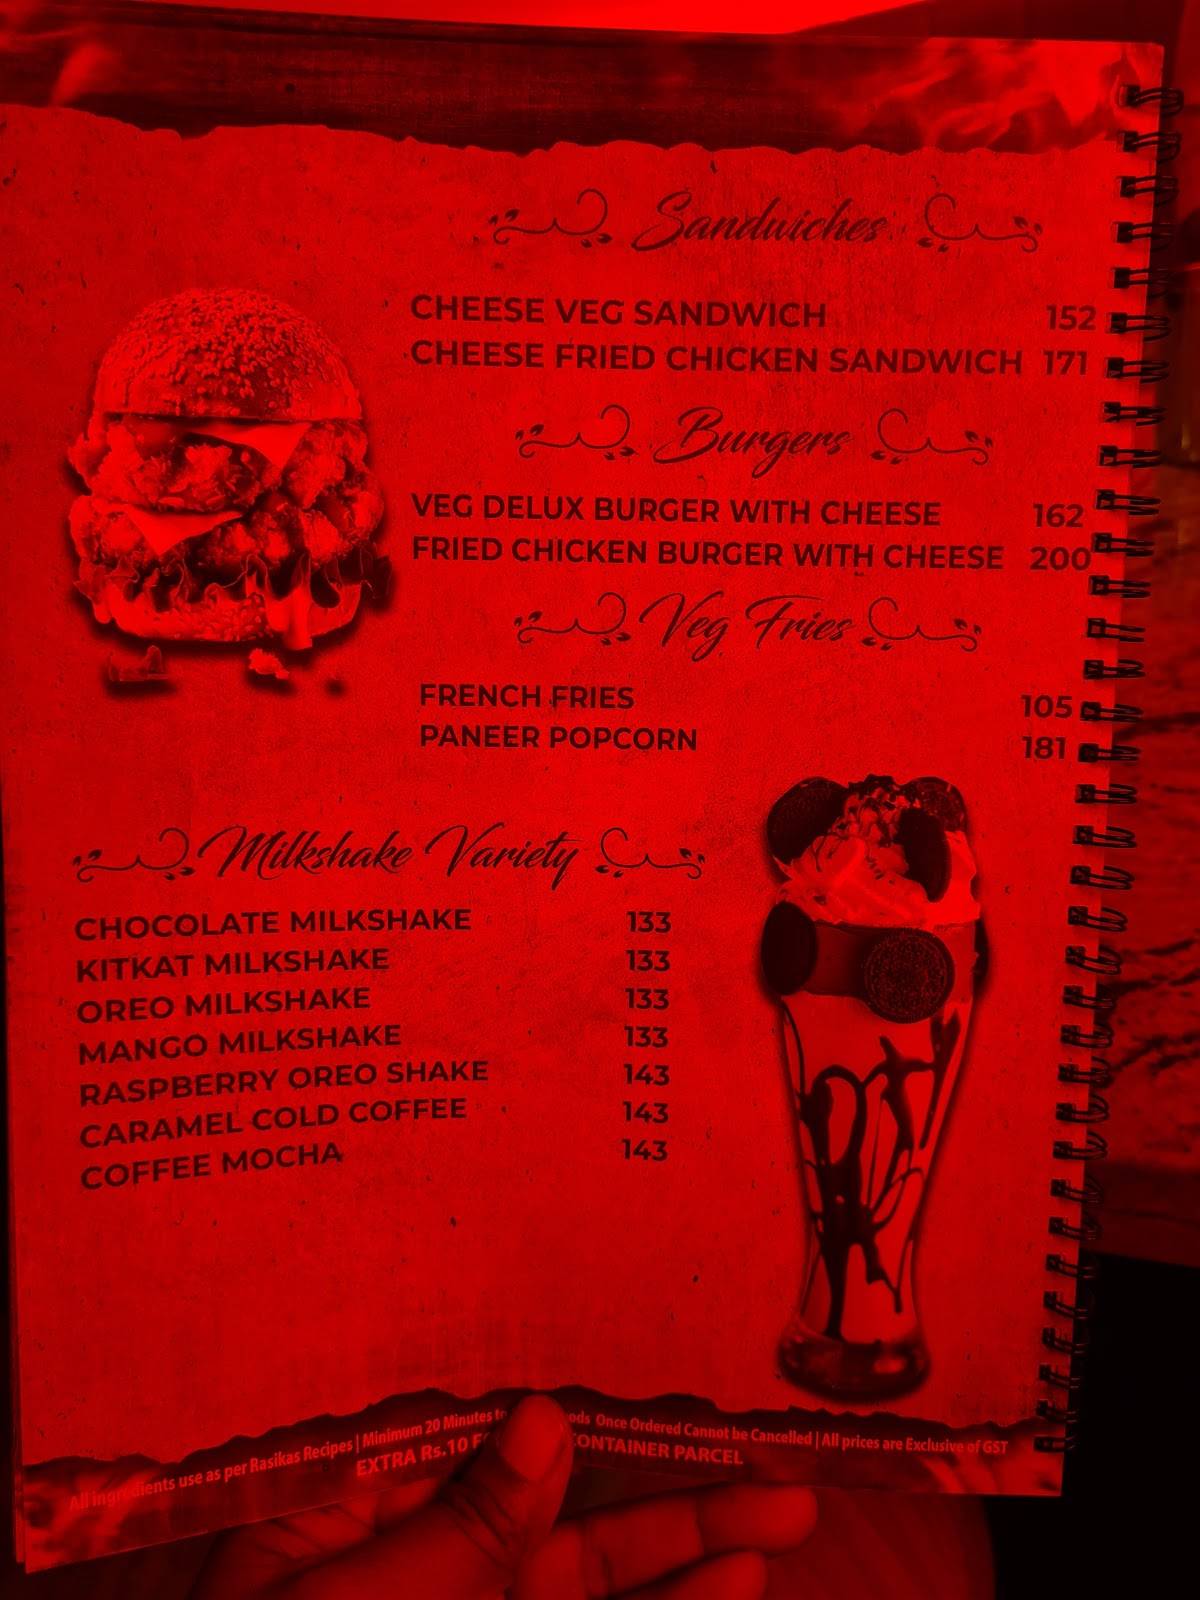 Sandwiches
CHEESE VEG SANDWICH 152
CHEESE FRIED CHICKEN SANDWICH 171
Burgers
VEG DELUX BURGER WITH CHEESE 162
FRIED CHICKEN BURGER WITH CHEESE 200
Veg Fries
FRENCH FRIES 105
PANEER POPCORN 181
Milkshake Variety
CHOCOLATE MILKSHAKE 133
KITKAT MILKSHAKE 133
OREO MILKSHAKE 133
MANGO MILKSHAKE 133
RASPBERRY OREO SHAKE 143
CARAMEL COLD COFFEE 143
COFFEE MOCHA 143
All ingredients use as per Rasikas Recipes | Minimum 20 Minutes Once Ordered Cannot be Cancelled | All prices are Exclusive of GST
EXTRA Rs.10 CONTAINER PARCEL